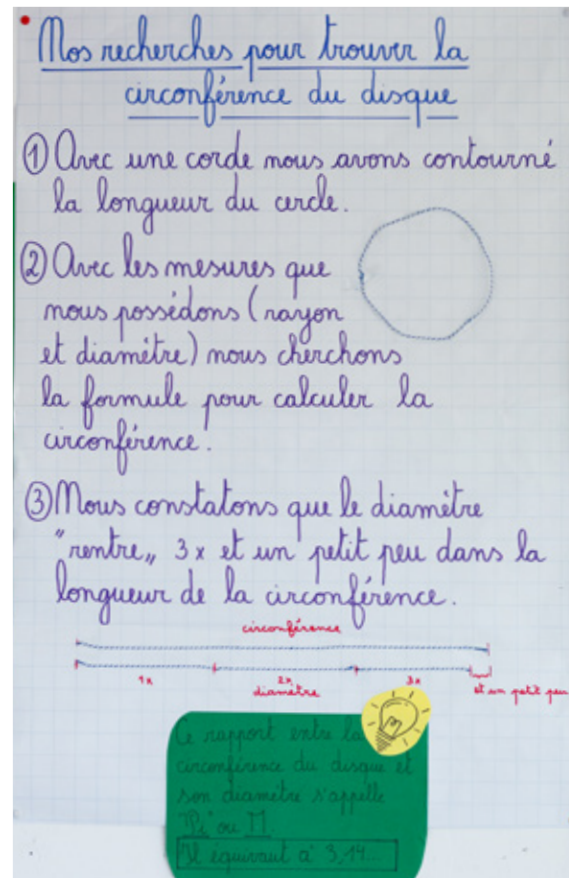 Nos recherches pour trouver la
circonférence du disque
① Avec une corde nous avons contourné
la longueur du cercle.
② Avec les mesures que
nous possédons (rayon
et diamètre) nous cherchons
la formule pour calculer la
circonférence.
③ Nous constatons que le diamètre
"rentre„ 3x et un petit peu dans la
longueur de la circonférence.
circonférence
1x 2x 3x et un petit peu
diamètre
Ce rapport entre la
circonférence du disque et
son diamètre s'appelle
"Pi" ou Π
Il équivaut à 3,14...